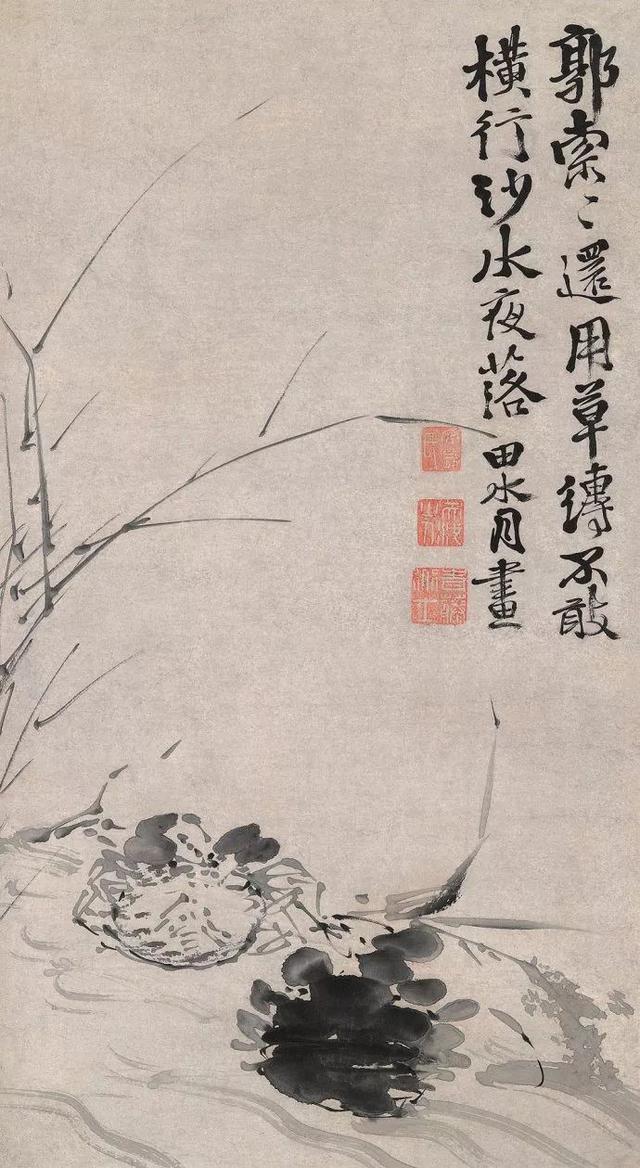 郭索〻還用草縛不敢
橫行沙水夜落
田水月畫